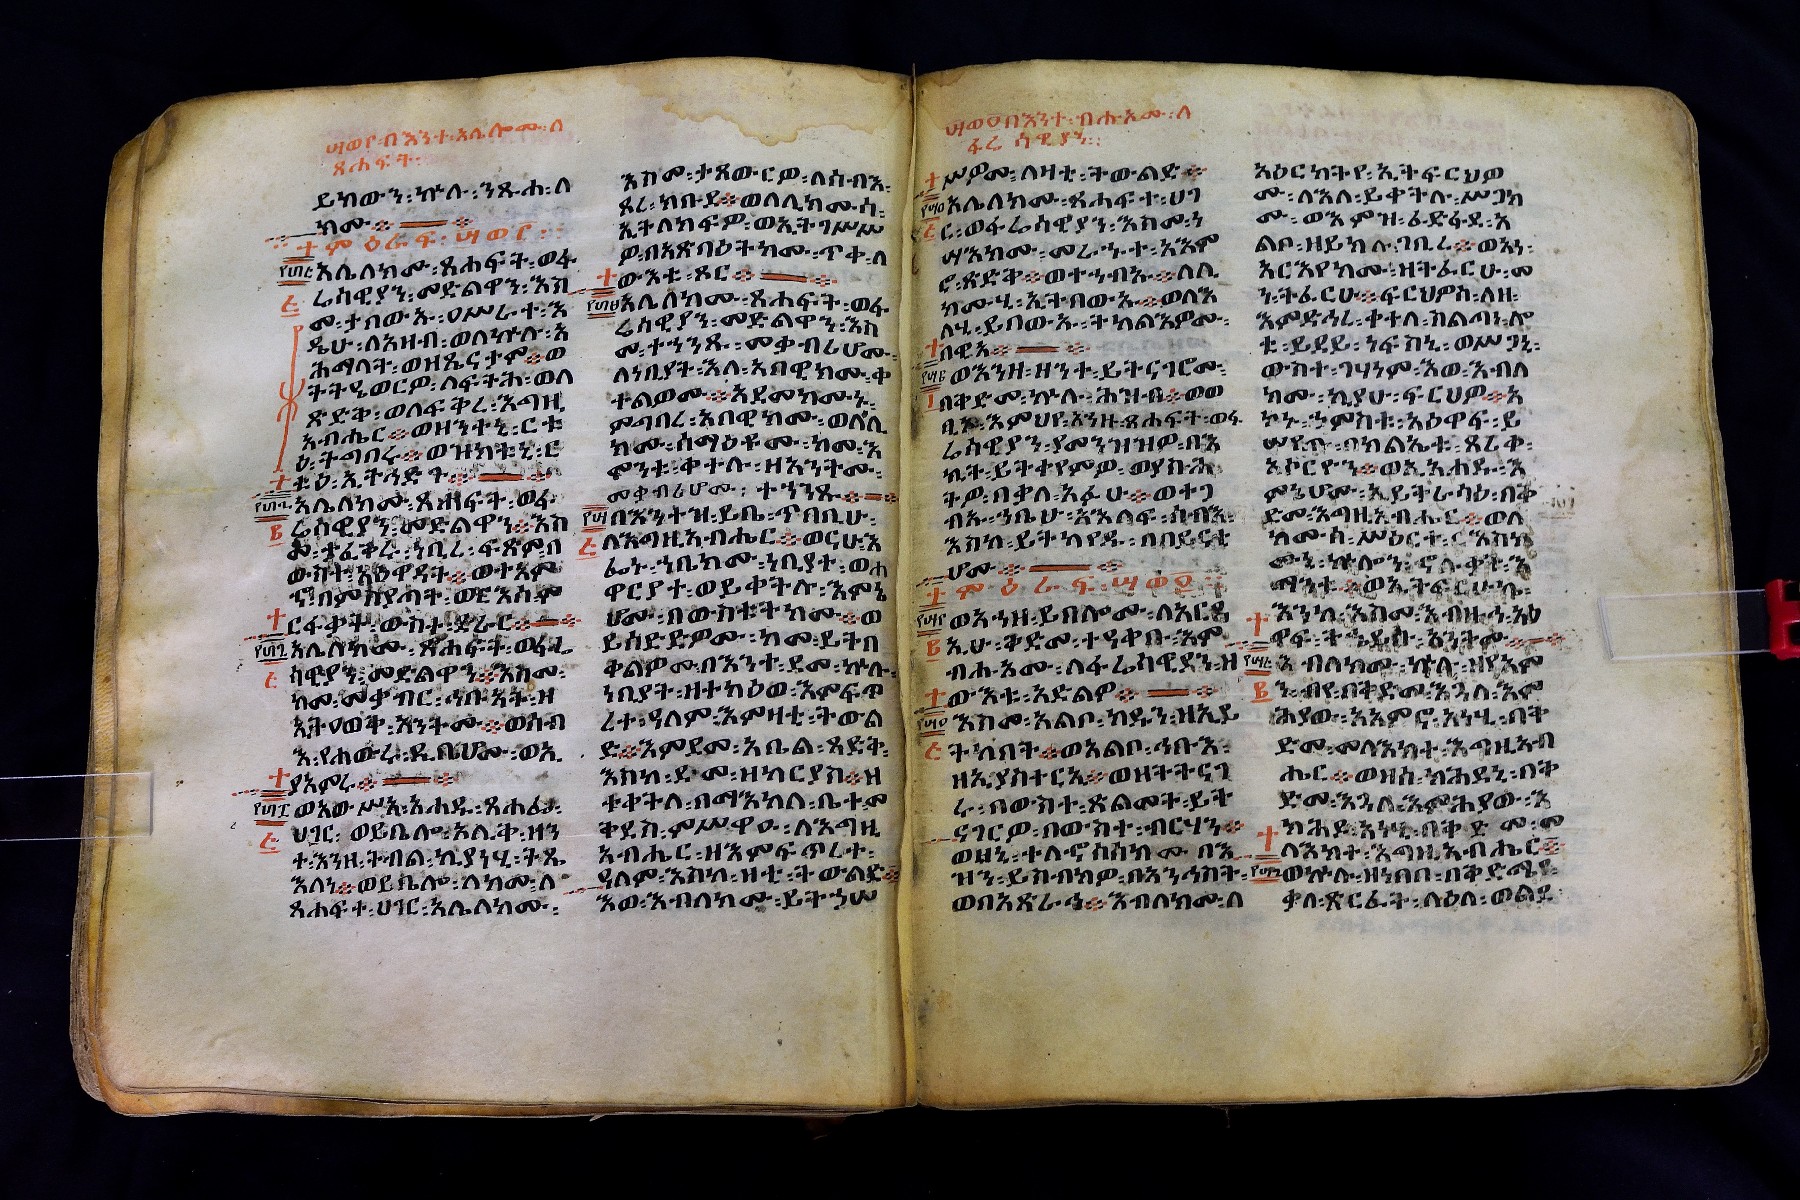 በእንተ፡አሌሎሙ፡ለ
ጸሐፍት፡
ይከውን፡ኵሉ፡ንጹሐ፡ለ
ክሙ፡
ምዕራፍ፡
አሌለክሙ፡ጸሐፍት፡ወፋ
ሬስዊያን፡መድልዋን፡እስ
መ፡ታበውኡ፡ዐሥራተ፡እ
ዴሁ፡ለአዘብ፡ወለኵሉ፡አ
ሕማላት፡ወዘጼና፡ጥም፡ወ
ትትዔወርዎ፡ለፍትሕ፡ወለ
ጽድቅ፡ወለፍቅረ፡እግዚ
አብሔር፡ወዘንተኒ፡ርቱ
ዕ፡ትግበሩ፡ወዝክተኒ፡ር
ቱዕ፡ኢትኅድጉ፡
አሌለክሙ፡ጸሐፍት፡ወፋ
ሬስዊያን፡መድልዋን፡እስ
መ፡ታፈቅሩ፡ነቢረ፡ፍጽም፡በ
ውስተ፡አዕዋዳት፡ወተአም
ኆ፡በምስያጣት፡
ርፋቃት፡ውስተ፡ድራር፡
አሌለክሙ፡ጸሐፍት፡ወፋሬ
ስዊያን፡መድልዋን፡እስመ፡
ከመ፡መቃብር፡ኅቡኣት፡ዘ
ኢትዐወቅ፡አንትሙ፡ወሰብ
እ፡የሐውሩ፡ዲቤሆሙ፡ወኢ
ያአምሩ፡
ወአውሥአ፡አሐዱ፡ጸሐፌ፡
ሀገር፡ወይቤሎ፡ሊቅ፡ዘን
ተ፡እንዘ፡ትብል፡ኪያነሂ፡ትጼ
እለነ፡ወይቤሎ፡ለክሙ፡ለ
ጸሐፍተ፡ሀገር፡አሌለክሙ፡
እስመ፡ታጸውርዎ፡ለሰብእ፡
ጾረ፡ክቡደ፡ወለሊክሙሰ፡
ኢትለክፍዎ፡ወኢትገሥሥ
ዎ፡በአጽባዕትክሙ፡ጥቀ፡ለ
ውእቱ፡ጾር፡
አሌለክሙ፡ጸሐፍት፡ወፋ
ሬስዊያን፡መድልዋን፡እስ
መ፡ተሐንጹ፡መቃብሪሆሙ፡
ለነቢያት፡እለ፡አበዊክሙ፡ቀ
ተልዎሙ፡እደምክሙኑ፡
ምግባረ፡አበዊክሙ፡ወለሊ
ክሙ፡ሰማዕቱሙ፡ከመ፡እ
ሙንቱ፡ቀተሉ፡ዘአንትሙ፡
መቃብሪሆሙ፡ተሐንጹ፡
በእንተዝ፡ይቤ፡ጥበቢሁ፡
ለእግዚአብሔር፡ወናሁ፡እ
ፌኑ፡ኀቤክሙ፡ነቢያተ፡ወሐ
ዋርያተ፡ወይቀትሉ፡እምኔ
ሆሙ፡በውስቴትክሙ፡ወ
ይሰድድዎሙ፡ከመ፡ይትበ
ቀልዎሙ፡በእንተ፡ደመ፡ኵሉ፡
ነቢያት፡ዘተክዕወ፡እምፍጥ
ረተ፡ዓለም፡እምዛቲ፡ትውል
ድ፡እምደመ፡አቤል፡ጻድቅ፡
እስከ፡ደመ፡ዘካርያስ፡ዘ
ቀተልዎ፡በማእከለ፡ቤተ፡መ
ቅደስ፡ምሥዋዑ፡ለእግዚ
አብሔር፡ዘእምፍጥረተ፡
ዓለም፡እስከ፡ዛቲ፡ትውልድ፡
እወ፡እብለክሙ፡ይትኃሠ
በእንተ፡ብሑአሙ፡ለ
ፋሬሳዊያን፡
ሥዎሙ፡ለዛቲ፡ትውልድ፡
አሌለክሙ፡ጸሐፍተ፡ሀገ
ር፡ወፋሬስዊያን፡እስመ፡ነ
ሣእክሙ፡መራኁተ፡አእም
ሮ፡ጽድቅ፡ወተኀብኡ፡ለሊ
ክሙሂ፡ኢትበውኡ፡ወለእ
ለሂ፡ይበውኡ፡ትከልእዎሙ፡
በዊአ፡
ወእንዘ፡ዘንተ፡ይትናገሮሙ፡
በቅድመ፡ኵሉ፡ሕዝብ፡ወወ
ፂኦ፡እምህየ፡እንዘ፡ጸሐፍት፡ወፋ
ሬስዊያን፡ያመንዝዝዎ፡በእ
ኪት፡ይትቀየምዎ፡ወየኀሥ
ትዎ፡በቃለ፡አፉሁ፡ወተጋ
ብኡ፡ኀቤሁ፡አእላፍ፡ሰብእ፡
እስከ፡ይትካየዱ፡በበይናቲ
ሆሙ፡
ምዕራፍ፡
ወእንዘ፡ይብሎሙ፡ለአርዳ
ኢሁ፡ቅድመ፡ተዓቀቡ፡እም
ብሑአሙ፡ለፋሬሳዊያን፡ዘ
ውእቱ፡አድልዎ፡
እስመ፡አልቦ፡ክዱን፡ዘኢይ
ትከሠት፡ወአልቦ፡ኅቡእ፡
ዘኢያስተርኢ፡ወዘትትናገ
ሩ፡በውስተ፡ጽልመት፡ይት
ናገርዎ፡በውስተ፡ብርሃን፡
ወዘኒ፡ተላኆሰስክሙ፡በእ
ዝን፡ይሰብክዎ፡በአንሕስት፡
ወበአጽራሕ፡እብለክሙ፡ለ
አዕርክትየ፡ኢትፍርህዎ
ሙ፡ለእለ፡ይቀትሉ፡ሥጋክ
ሙ፡ወእምዝ፡ፈድፋደ፡አ
ልቦ፡ዘይክሉ፡ገቢረ፡ወአነ፡
አርእየክሙ፡ዘትፈርሁ፡መ
ኑ፡ትፈርሁ፡ፍርህዎሰ፡ለዘ፡
እምድኅረ፡ቀተለ፡ክልጣኒ፡ሎ
ቱ፡ይደይ፡ነፍስኒ፡ወሥጋኒ፡
ውስተ፡ገሃነም፡እወ፡እብለ
ክሙ፡ኪያሁ፡ፍርህዎ፡አ
ኮኑ፡ኃምስቱ፡አዕዋፍ፡ይ
ሠየጣ፡በክልኤቱ፡ጸሪቀ፡
አሶርዮን፡ወኢአሐዱ፡እ
ምኔሆሙ፡ኢይትራሳዕ፡በቅ
ድመ፡እግዚአብሔር፡ወለ
ክሙሰ፡ሥዕርተ፡ርእስክ
ሙኒ፡ኵሎን፡ኆልቁት፡እ
ማንቱ፡ወኢትፍርሁኬ፡
እንከ፡እስመ፡እብዝኃ፡አዕ
ዋፍ፡ትኄይሱ፡አንትሙ፡
እብለክሙ፡ኵሉ፡ዘየአም
ን፡ብየ፡በቅድመ፡እጓለ፡እም
ሕያው፡አአምኖ፡አነሂ፡በቅ
ድመ፡መላእክተ፡እግዚአብ
ሔር፡ወዘሰ፡ክሕደኒ፡በቅ
ድመ፡እጓለ፡እምሕያው፡እ
ክሕዶ፡አነሂ፡በቅድመ፡መ
ላእክተ፡እግዚአብሔር፡
ወኵሉ፡ዘነበበ፡በቅድሜየ፡
ቃለ፡ጽርፈት፡ላዕለ፡ወልደ